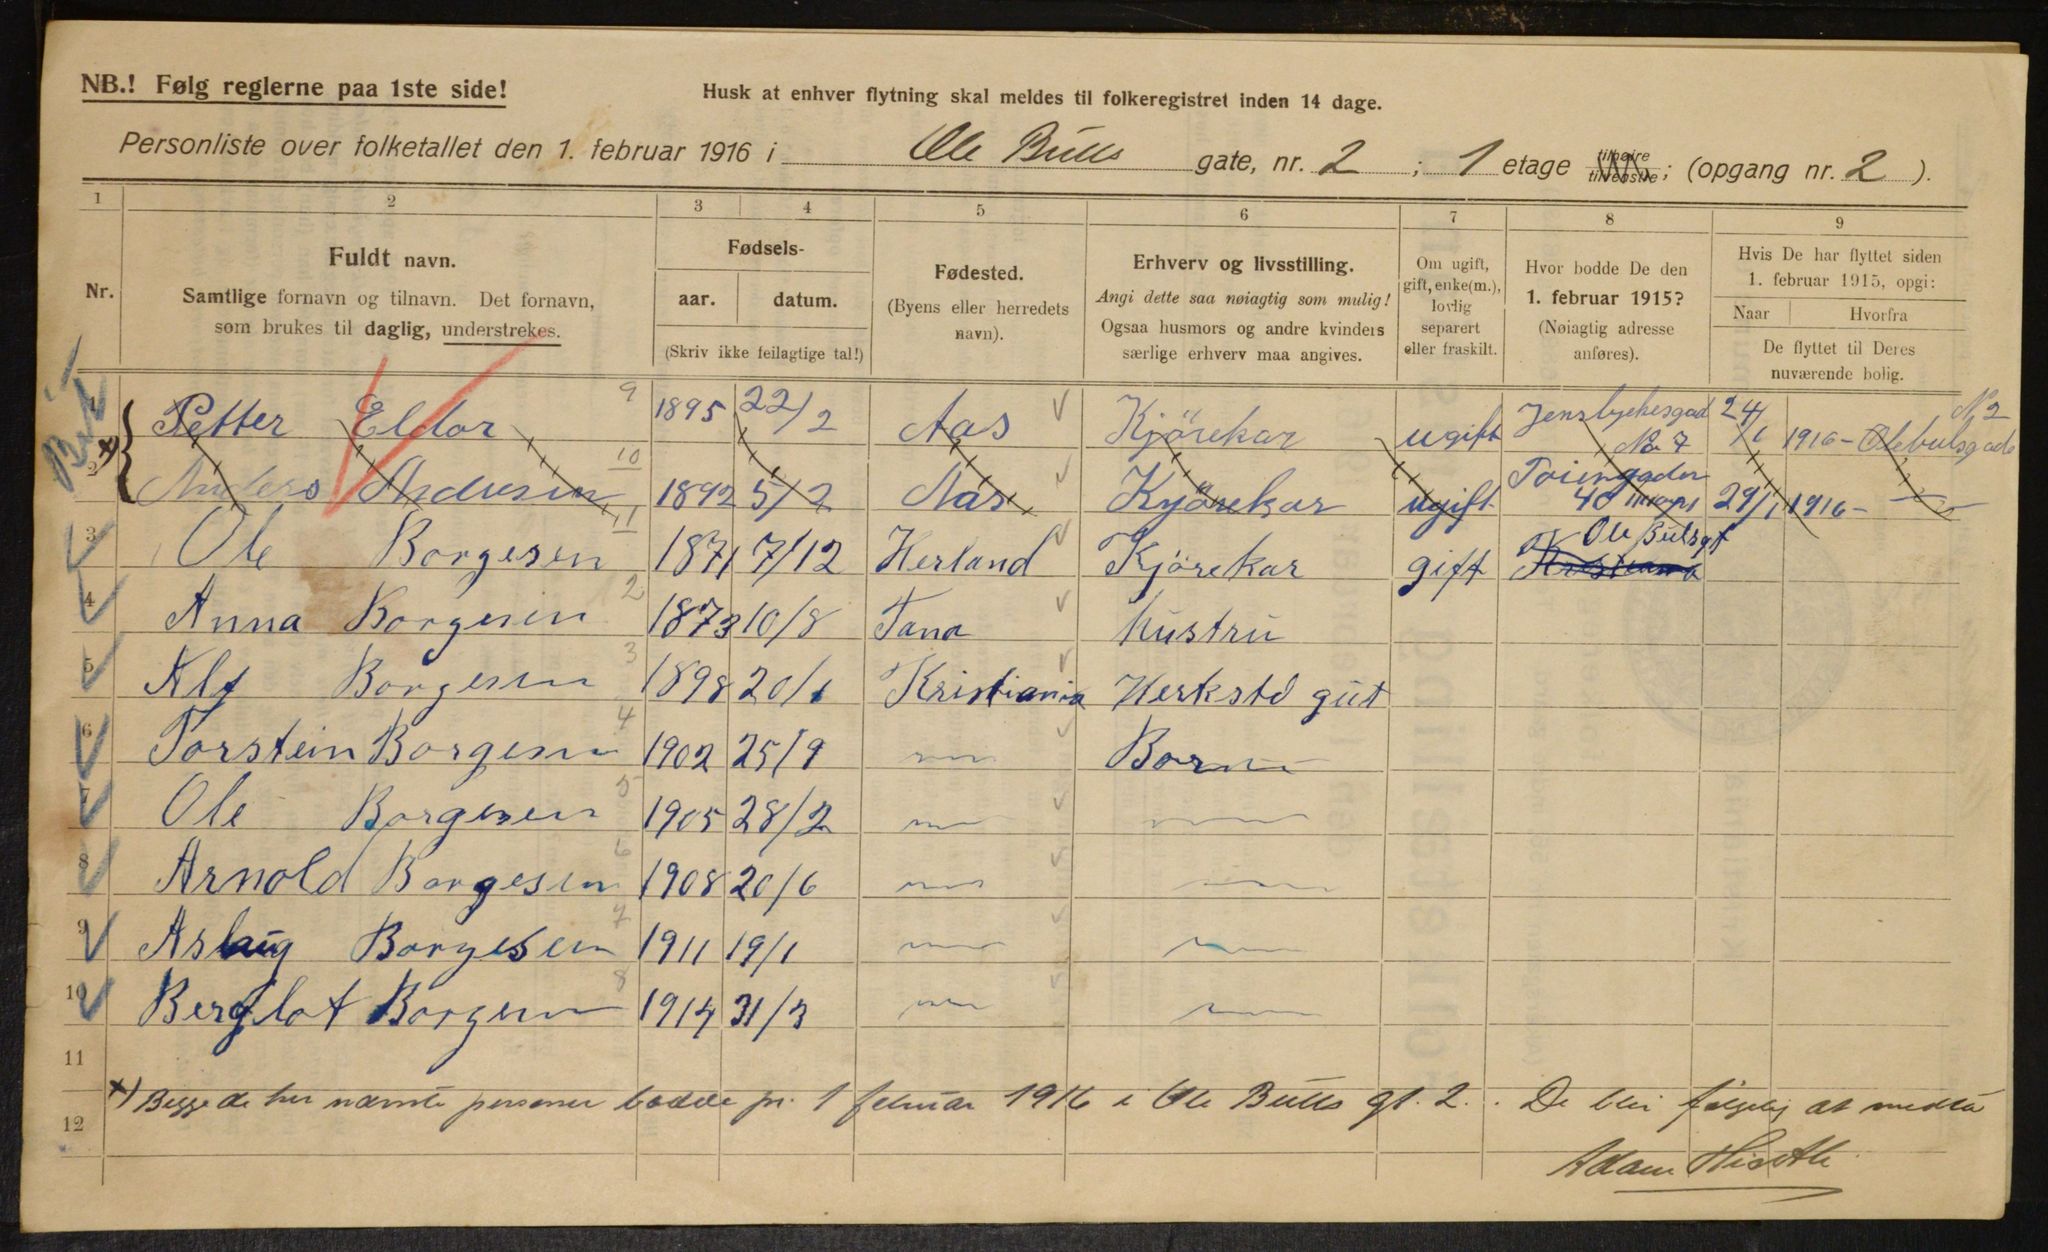 NB.! Følg reglerne paa 1ste side!
Husk at enhver flytning skal meldes til folkeregistret inden 14 dage.
Personliste over folketallet den 1. februar 1916 i Ole Bulls gate, nr. 2 ; 1 etage tilhøire tilvenstre ; (opgang nr. 2 ).
1 2 3 4 5 6 7 8 9
Nr.
Fuldt navn.
Samtlige fornavn og tilnavn. Det fornavn,
som brukes til daglig, understrekes.
Fødsels-
aar. datum.
(Skriv ikke feilagtige tal!)
Fødested.
(Byens eller herredets
navn).
Erhverv og livsstilling.
Angi dette saa nøiagtig som mulig!
Ogsaa husmors og andre kvinders
særlige erhverv maa angives.
Om ugift,
gift, enke(m.),
lovlig
separert
eller fraskilt.
Hvor bodde De den
1. februar 1915?
(Nøiagtig adresse
anføres).
Hvis De har flyttet siden
1. februar 1915, opgi:
Naar Hvorfra
De flyttet til Deres
nuværende bolig.
Petter Eldor 9 1895 22/2 Aas Kjörekar ugift No 7 24/1 1916 - Olebulsgade No 2
2 Anders Andresen 10 1892 5/2 Aas Kyörekar ugift Töiengaden 40 29/1 1916 -
3 Ole Borgesen 11 1871 7/12 Herland Kjörekar gift Ole Bulsgt Kristiania
4 Anna Borgesen 2 1873 10/8 Tana hustru
5 Alf Borgesen 3 1898 20/1 Kristiania Verksted gut
6 Torstein Borgesen 4 1902 25/9 — Borne
7 Ole Borgesen 5 1905 28/2 — —
8 Arnold Borgesen 6 1908 20/6 — —
9 Aslaug Borgesen 7 1911 19/1 — —
10 Bergliot Borgesen 8 1914 31/3 — —
11
x) Begge de her nævnte personer bodde pr. 1 februar 1916 i Ole Bulls gt. 2. De blir følgelig at medta
12
Adam